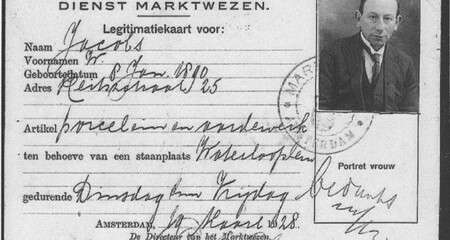 DIENST MARKTWEZEN.
Legitimatiekaart voor:
Naam Jacobs
Voornamen W.
Geboortedatum 8 Jan. 1890
Adres 25
Artikel porcelein en aardewerk
ten behoeve van een staanplaats Waterlooplein
gedurende Dinsdag t/m Vrijdag
AMSTERDAM, 19 Maart 1928.
De Directeur van het Marktwezen.
Portret vrouw